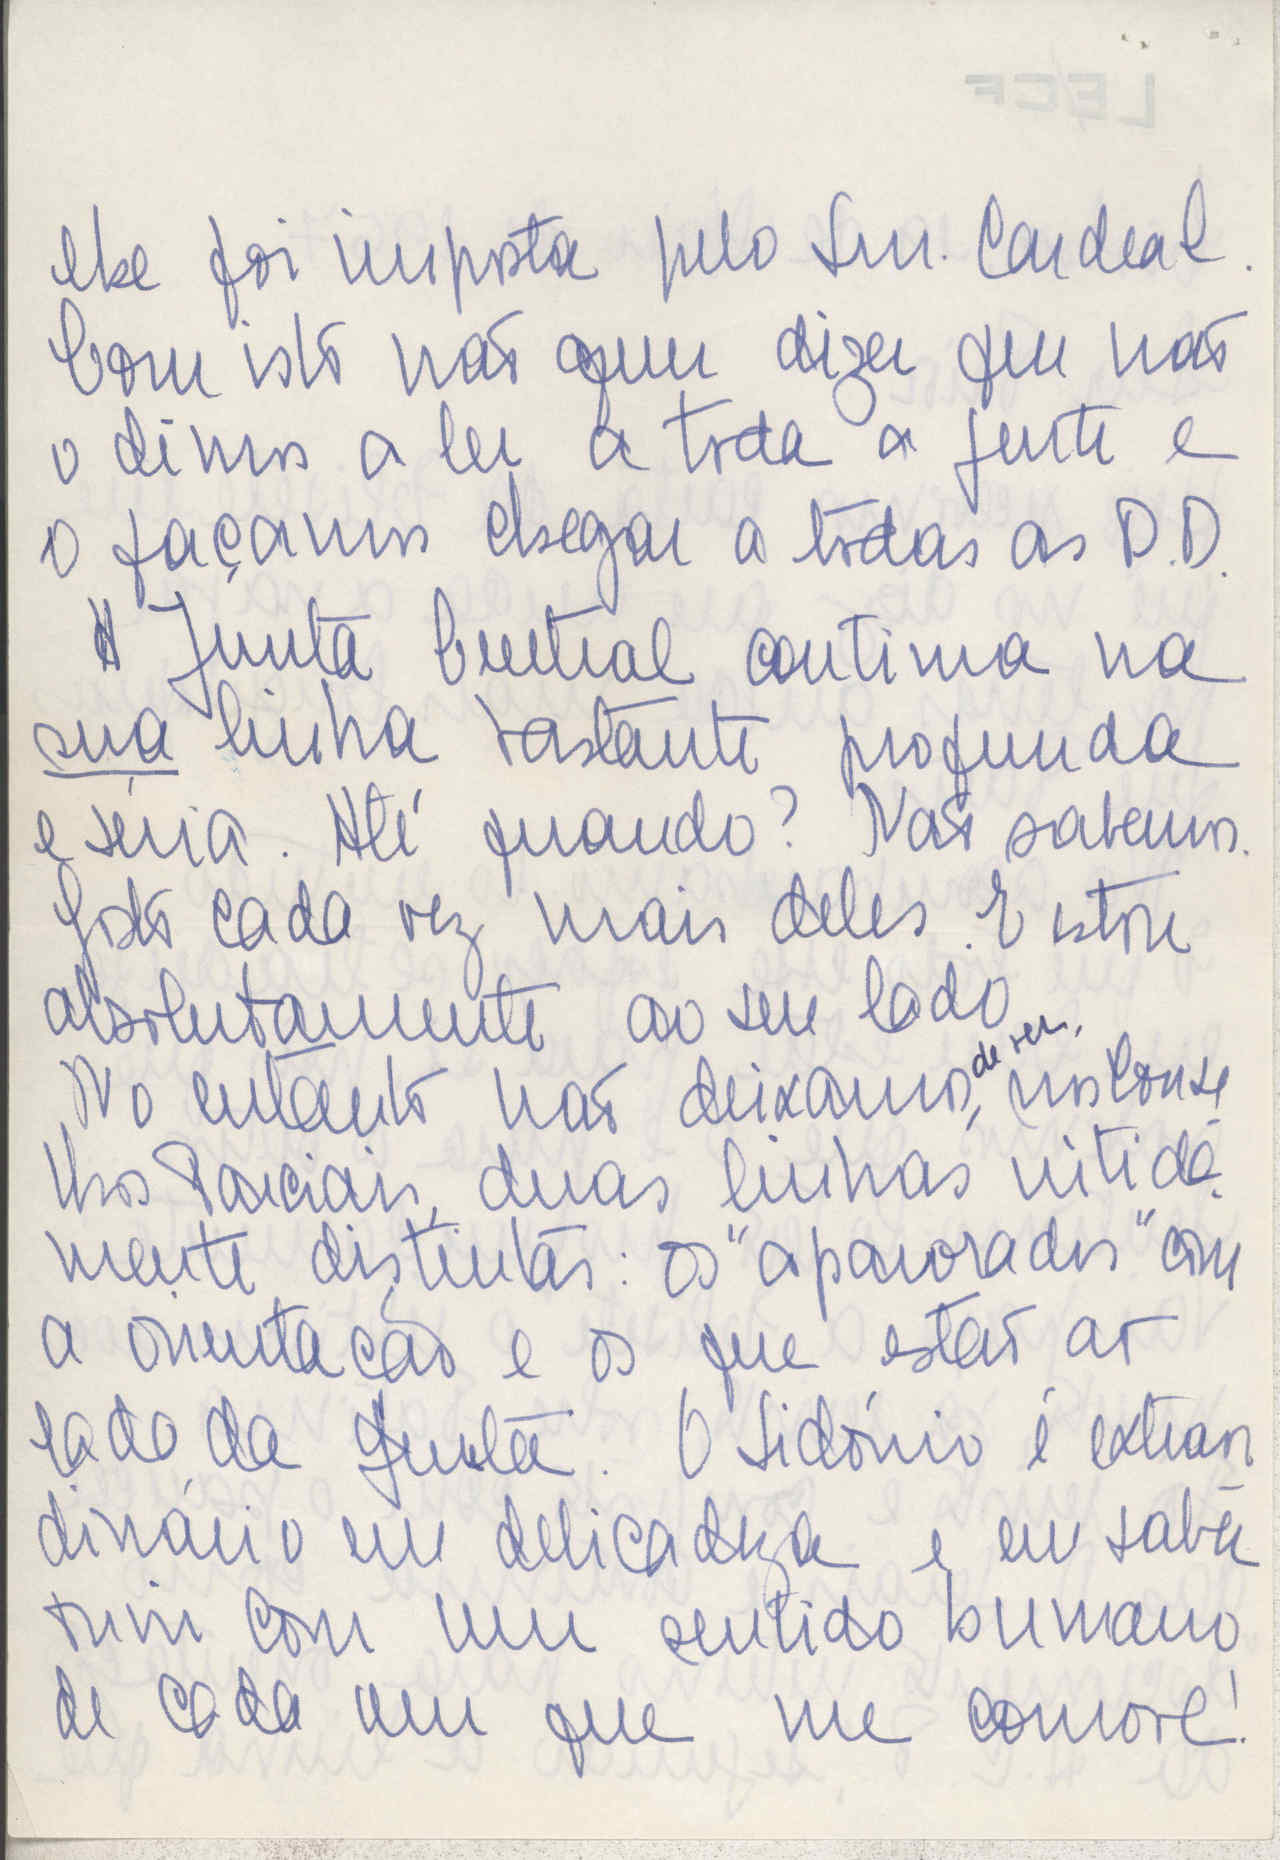 LECF
lhe foi imposta pelo Snr. Cardeal.
Com isto não quer dizer que não
o dêmos a ler a toda a gente e
o façamos chegar a todas as D.D.
A Junta Central continua na
sua linha bastante profunda
e séria. Até quando? Não sabemos.
Gosto cada vez mais deles. E estou
absolutamente ao seu lado
No entanto não deixamos, de ver, nos Conse
lhos Parciais, duas linhas nitida
mente distintas: os "apavorados" com
a orientação e os que estão ao
lado da Junta. O Sidónio é extraor
dinário em delicadeza e em saber
ouvir com um sentido humano
de cada um que me comove!